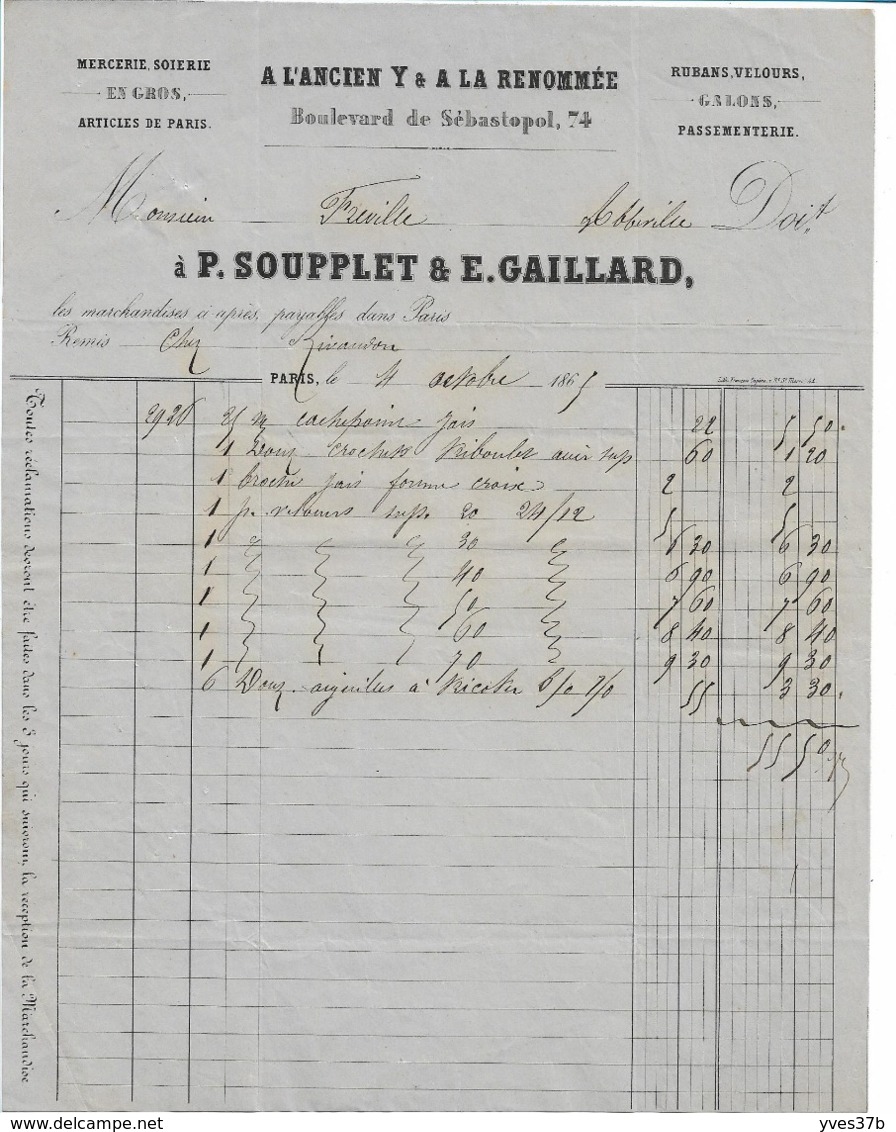 MERCERIE, SOIERIE
EN GROS,
ARTICLES DE PARIS.
A L'ANCIEN Y & A LA RENOMMÉE
Boulevard de Sébastopol, 74
RUBANS, VELOURS,
GALONS,
PASSEMENTERIE.
Monsieur Freville Abbeville Doit
à P. SOUPPLET & E. GAILLARD,
les marchandises ci après, payables dans Paris
Remis Chez
PARIS, le 4 octobre 1865
2926 25 m cachepoint jais 22 5 50
1 Douz crochets Riboulet acier sup 60 1 20
1 broche jais forme croix 2 2
1 p. velours sup. 20 24/12 5 5
1 30 6 30 6 30
1 40 6 90 6 90
1 50 7 60 7 60
1 60 8 40 8 40
1 70 9 30 9 30
6 Douz. aiguilles à tricoter 55 3 30
55 50
Toutes réclamations devront être faites dans les 8 jours qui suivront, la réception de la Marchandise
yves37b